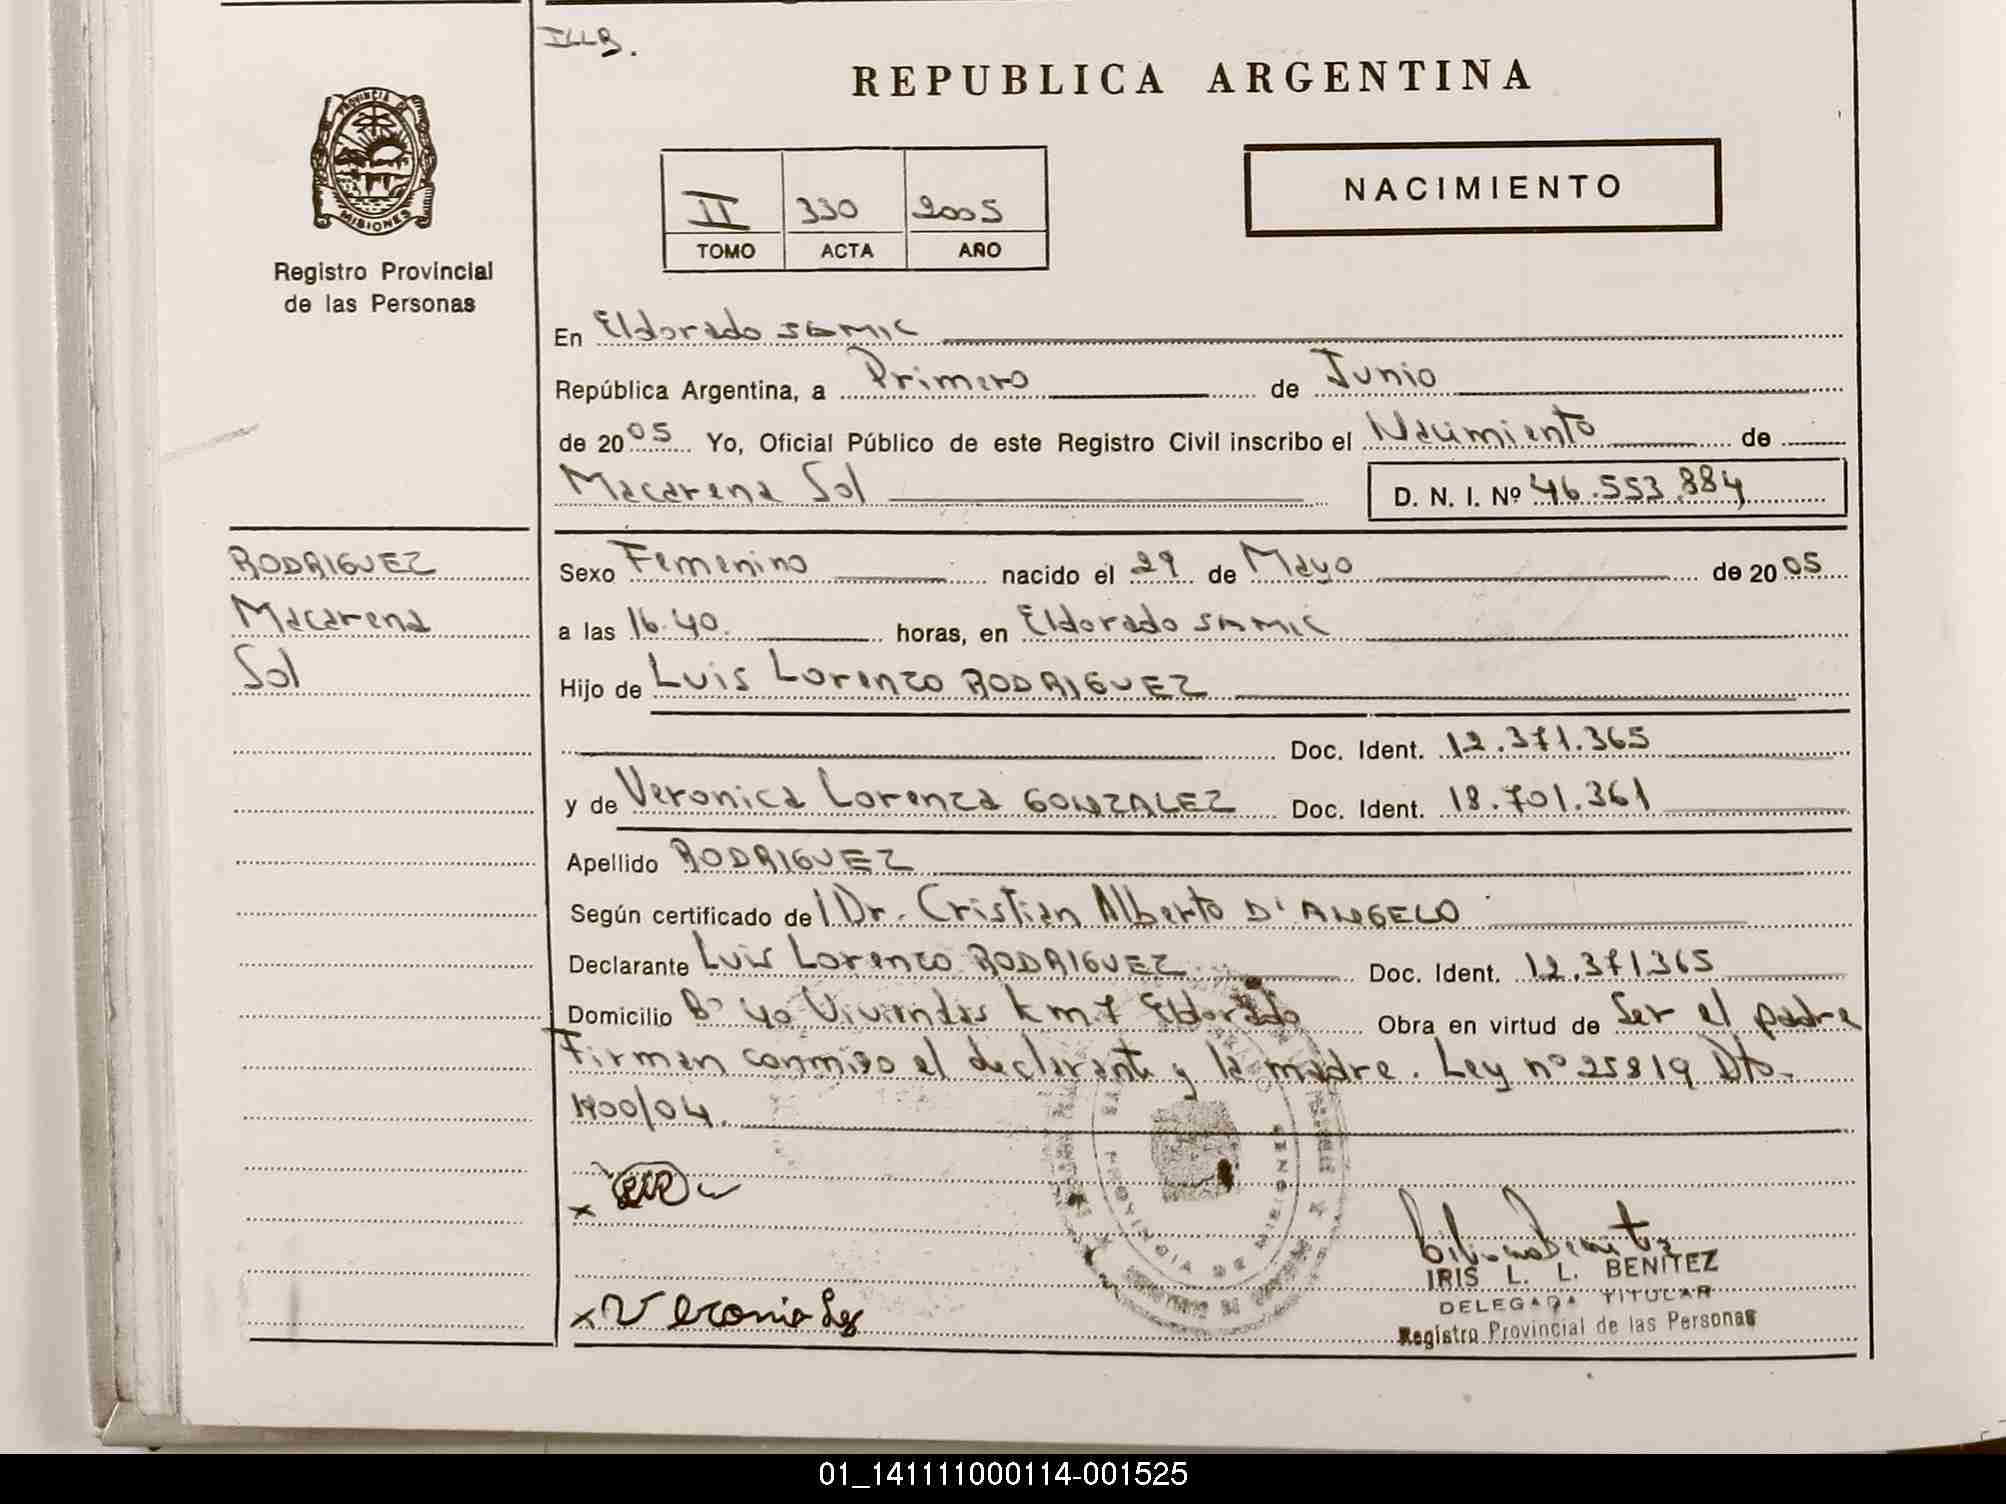 ILLB.
REPUBLICA ARGENTINA
PROVINCIA DE
MISIONES
Registro Provincial
de las Personas
II 330 2005
TOMO ACTA AÑO
NACIMIENTO
En Eldorado SAMIC
República Argentina, a Primero de Junio
de 2005 Yo, Oficial Público de este Registro Civil inscribo el Nacimiento de
Macarena Sol D. N. I. Nº 46.553.884
RODRIGUEZ
Macarena
Sol
Sexo Femenino nacido el 29 de Mayo de 2005
a las 16.40. horas, en Eldorado SAMIC
Hijo de Luis Lorenzo RODRIGUEZ
Doc. Ident. 12.371.365
y de Veronica Lorenza GONZALEZ Doc. Ident. 18.701.361
Apellido RODRIGUEZ
Según certificado de l Dr. Cristian Alberto D'ANGELO
Declarante Luis Lorenzo RODRIGUEZ Doc. Ident. 12.371365
Domicilio Bº 40 Viviendas km 7 Eldorado Obra en virtud de Ser el padre
Firman conmigo el declarante y la madre. Ley nº 25819 Dto.
1400/04.
PROVINCIA DE MISIONES
x
x Veronica
IRIS L. L. BENITEZ
DELEGADA TITULAR
Registro Provincial de las Personas
01_141111000114-001525